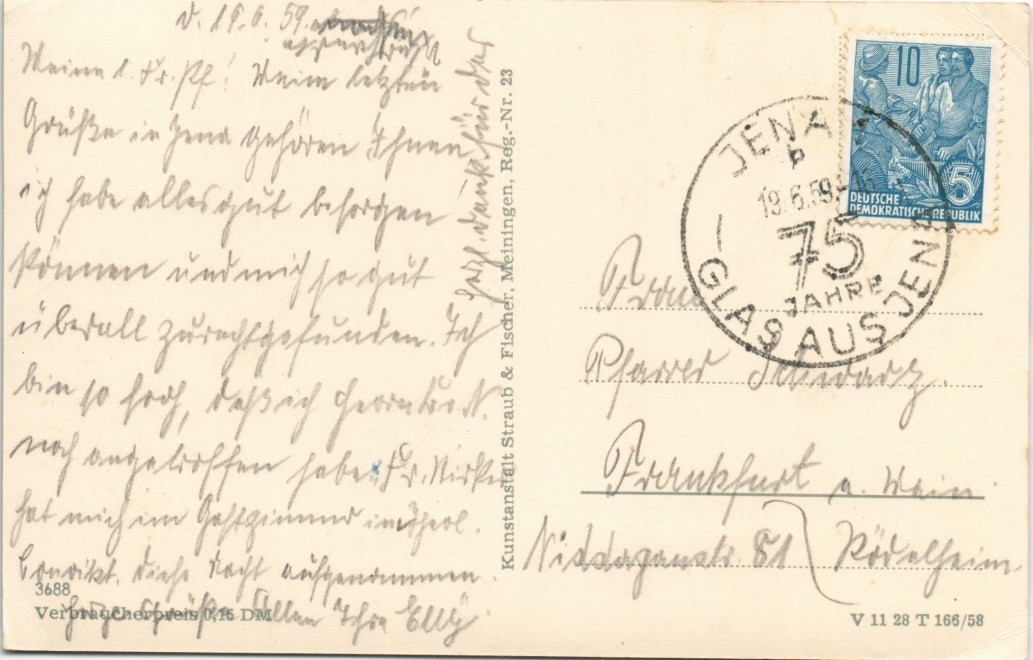 d. 18.6.59.
Meine l. Fr. Pf! Meine letzten
Grüße in Jena gehören Ihnen
ich habe alles gut besorgen
können und mich so gut
überall zurechtgefunden. Ich
bin so froh, daß ich Herrn
noch angetroffen habe. Fr.
hat mich im Gastzimmer im theol.
Konvikt diese Nacht aufgenommen.
Herzl. Grüße Allen Ihre Elly
herzl. Dank für das
3688
Verbraucherpreis 0,15 DM
Kunstanstalt Straub & Fischer, Meiningen, Reg.-Nr. 23
10
5
DEUTSCHE
DEMOKRATISCHE REPUBLIK
JENA 1
P
19.6.59
75
JAHRE
GLAS AUS JENA
Frau
Pfarrer Schwarz.
Frankfurt a. Main
Niddagaustr. 81 Rödelheim.
V 11 28 T 166/58